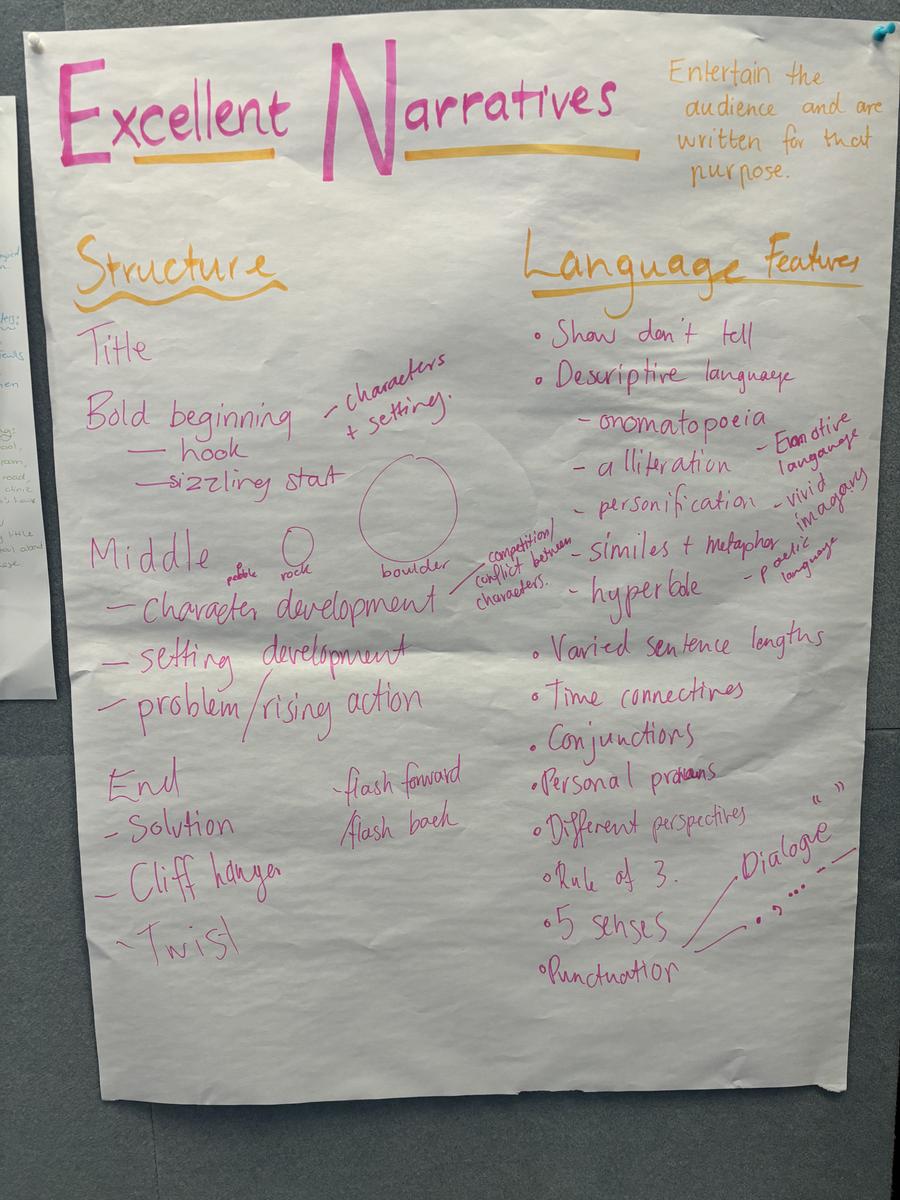 Excellent Narratives
Entertain the
audience and are
written for that
purpose.
Structure
Title
Bold beginning
- characters
+ setting.
- hook
- sizzling start
Middle
pebble
rock
boulder
- Character development
competition/
conflict between
characters.
- setting development
- problem/rising action
End
- flash forward
/flash back
- Solution
- Cliff hanger
- Twist
Language Features
• Show don't tell
• Descriptive language
- onomatopoeia
- alliteration
- Emotive
langauage
- personification
- vivid
imagary
- similes + metaphor
- poetic
language
- hyperbole
• Varied sentence lengths
• Time connectives
• Conjunctions
• Personal pronouns
• Different perspectives
• Rule of 3.
• 5 senses
• Punctuation
Dialogue " "
. , ... - —